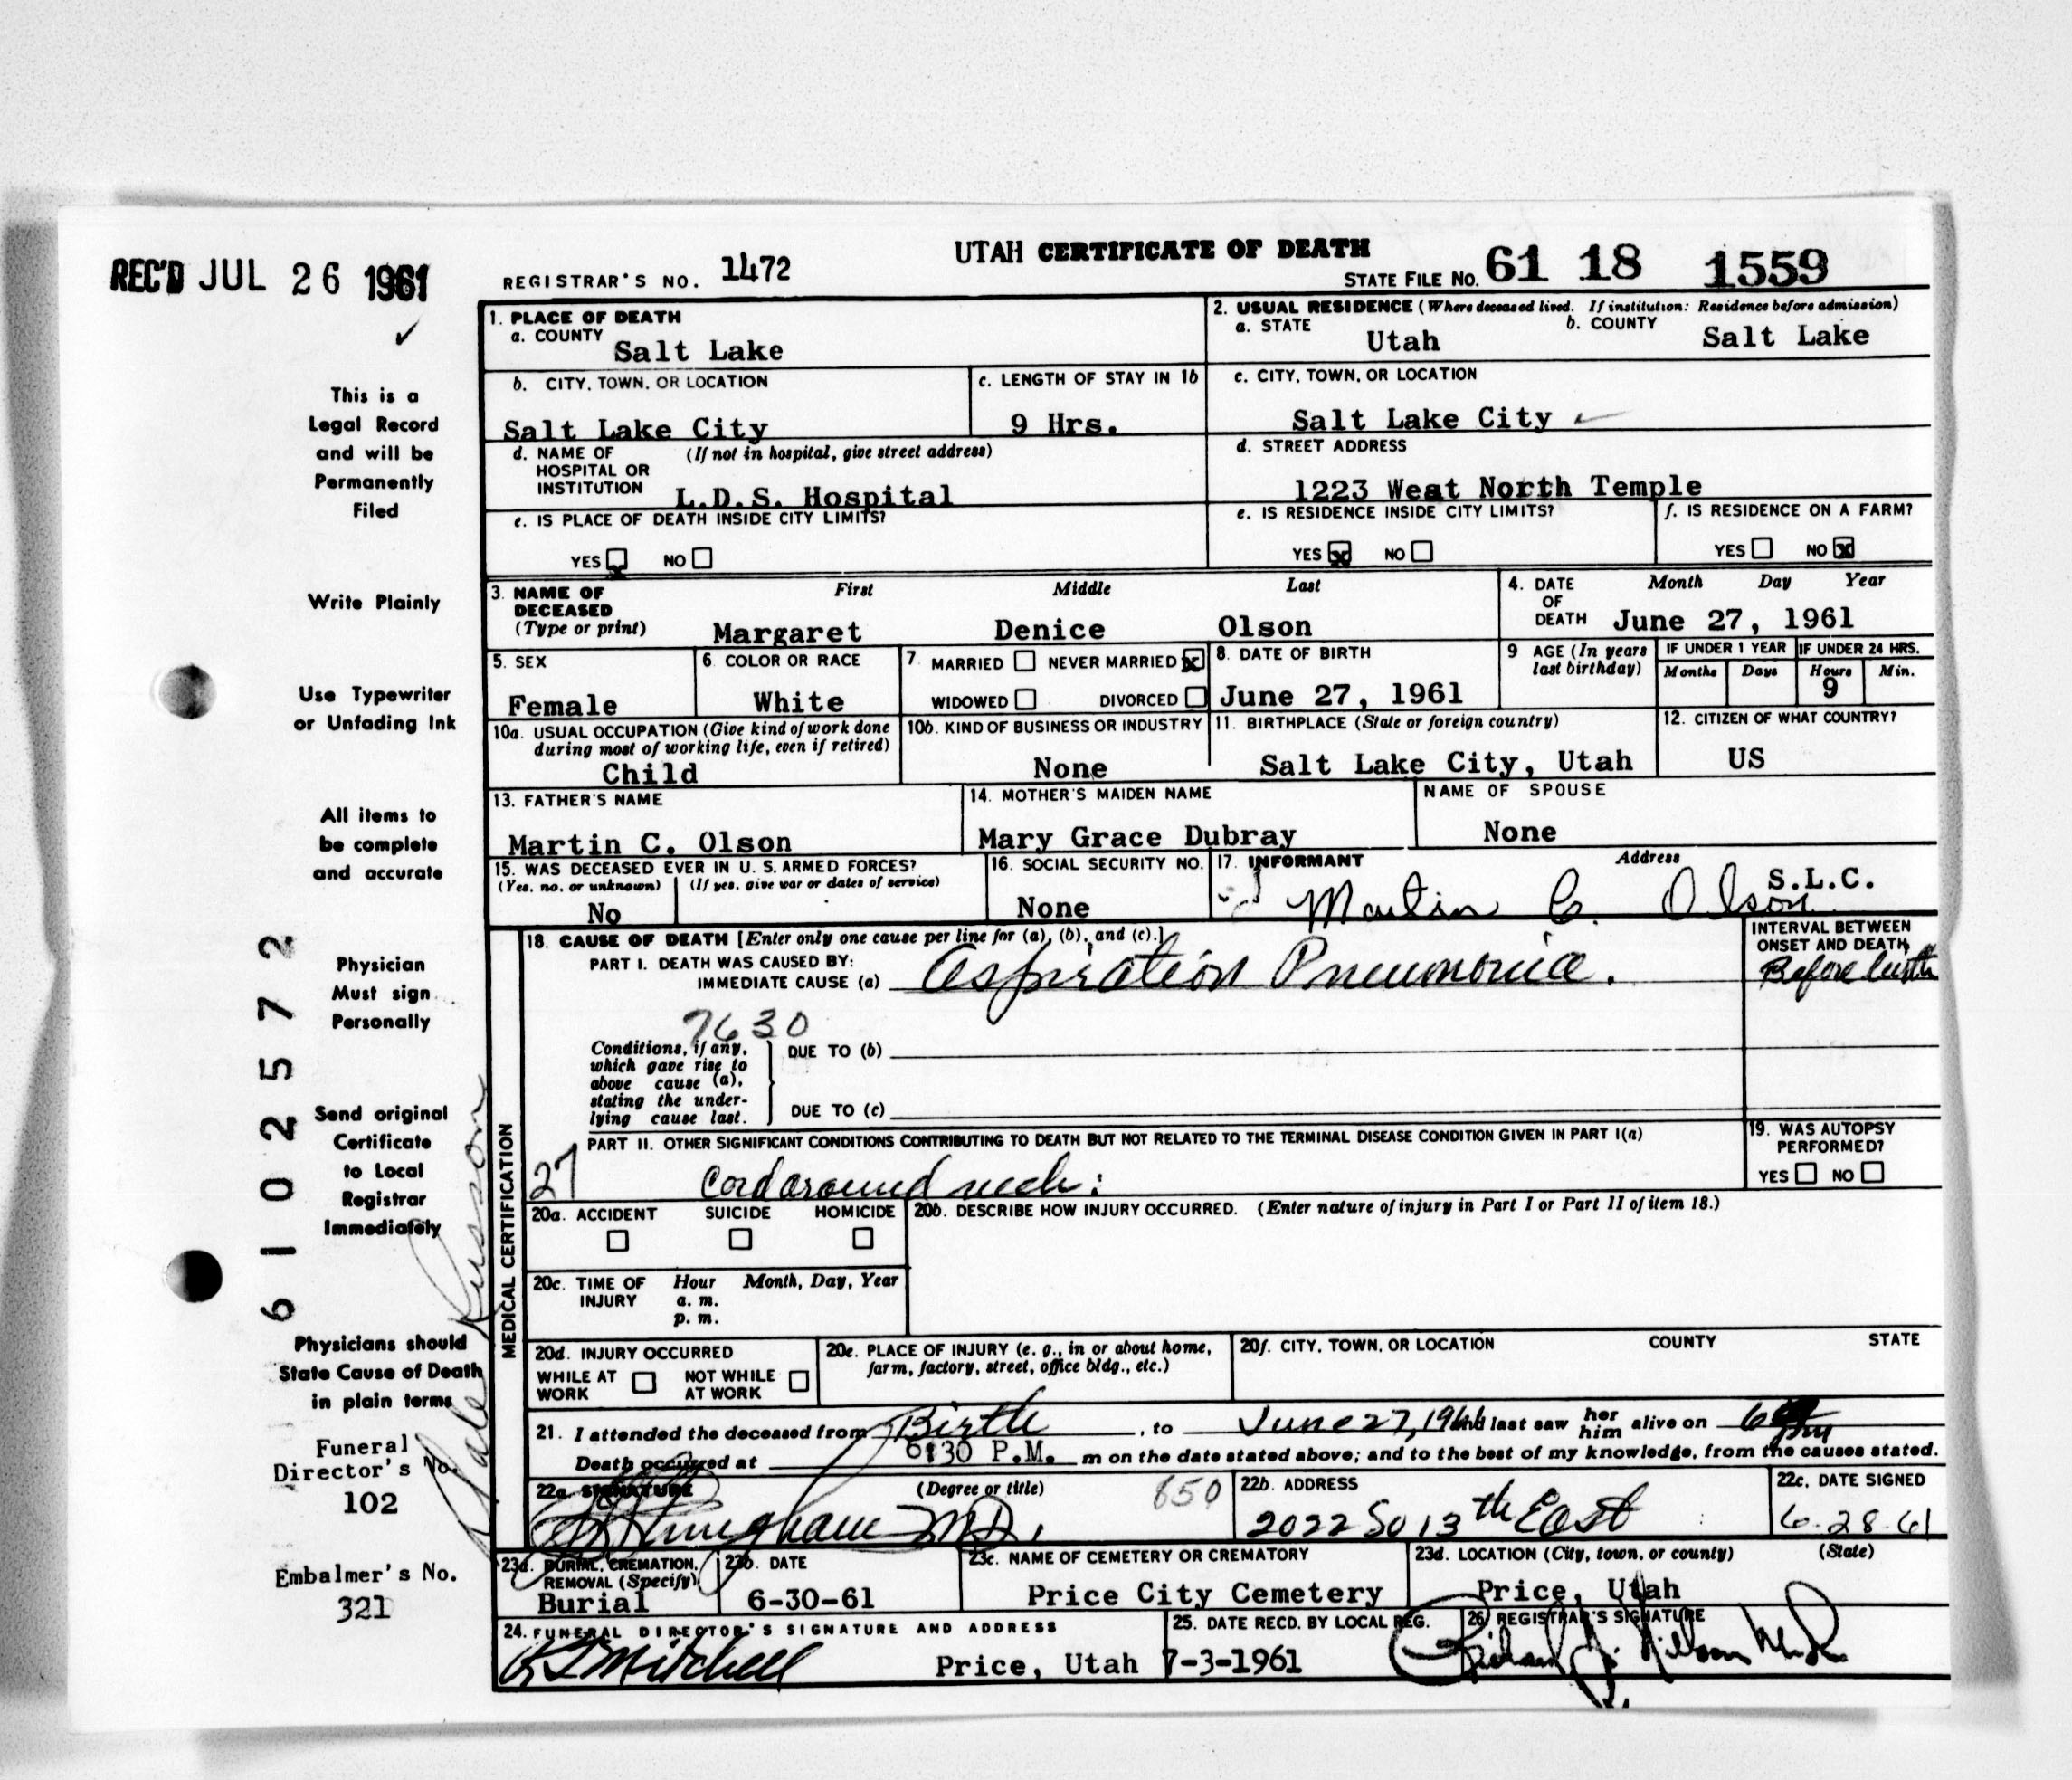 UTAH CERTIFICATE OF DEATH
REC'D JUL 26 1961
REGISTRAR'S NO. 1472
STATE FILE NO. 61 18 1559
This is a
Legal Record
and will be
Permanently
Filed
Write Plainly
Use Typewriter
or Unfading Ink
All items to
be complete
and accurate
Physician
Must sign
Personally
Send original
Certificate
to Local
Registrar
Immediately
Physicians should
State Cause of Death
in plain terms
Funeral
Director's No.
102
Embalmer's No.
321
61 02572
1. PLACE OF DEATH
a. COUNTY Salt Lake
2. USUAL RESIDENCE (Where deceased lived. If institution: Residence before admission)
a. STATE Utah b. COUNTY Salt Lake
b. CITY, TOWN, OR LOCATION Salt Lake City
c. LENGTH OF STAY IN 1b 9 Hrs.
c. CITY, TOWN, OR LOCATION Salt Lake City
d. NAME OF HOSPITAL OR INSTITUTION (If not in hospital, give street address) L.D.S. Hospital
d. STREET ADDRESS 1223 West North Temple
e. IS PLACE OF DEATH INSIDE CITY LIMITS?
YES x NO
e. IS RESIDENCE INSIDE CITY LIMITS?
YES x NO
f. IS RESIDENCE ON A FARM?
YES NO x
3. NAME OF DECEASED (Type or print) First Middle Last
Margaret Denice Olson
4. DATE OF DEATH Month Day Year
June 27, 1961
5. SEX Female
6. COLOR OR RACE White
7. MARRIED NEVER MARRIED x
WIDOWED DIVORCED
8. DATE OF BIRTH June 27, 1961
9 AGE (In years last birthday)
IF UNDER 1 YEAR Months Days
IF UNDER 24 HRS. Hours 9 Min.
10a. USUAL OCCUPATION (Give kind of work done during most of working life, even if retired) Child
10b. KIND OF BUSINESS OR INDUSTRY None
11. BIRTHPLACE (State or foreign country) Salt Lake City, Utah
12. CITIZEN OF WHAT COUNTRY? US
13. FATHER'S NAME Martin C. Olson
14. MOTHER'S MAIDEN NAME Mary Grace Dubray
NAME OF SPOUSE None
15. WAS DECEASED EVER IN U. S. ARMED FORCES?
(Yes, no, or unknown) (If yes, give war or dates of service)
No
16. SOCIAL SECURITY NO. None
17. INFORMANT Address
Martin C. Olson S.L.C.
MEDICAL CERTIFICATION
18. CAUSE OF DEATH [Enter only one cause per line for (a), (b), and (c).]
PART I. DEATH WAS CAUSED BY:
IMMEDIATE CAUSE (a) Aspiration Pneumonia.
INTERVAL BETWEEN ONSET AND DEATH
Before birth
7630
Conditions, if any, which gave rise to above cause (a), stating the underlying cause last.
DUE TO (b)
DUE TO (c)
PART II. OTHER SIGNIFICANT CONDITIONS CONTRIBUTING TO DEATH BUT NOT RELATED TO THE TERMINAL DISEASE CONDITION GIVEN IN PART I(a)
27 Cord around neck:
19. WAS AUTOPSY PERFORMED?
YES NO
20a. ACCIDENT SUICIDE HOMICIDE
20b. DESCRIBE HOW INJURY OCCURRED. (Enter nature of injury in Part I or Part II of item 18.)
20c. TIME OF INJURY Hour a. m. p. m. Month, Day, Year
20d. INJURY OCCURRED
WHILE AT WORK NOT WHILE AT WORK
20e. PLACE OF INJURY (e. g., in or about home, farm, factory, street, office bldg., etc.)
20f. CITY, TOWN, OR LOCATION COUNTY STATE
21. I attended the deceased from Birth, to June 27, 1961 and last saw her him alive on
Death occurred at 6:30 P.M. m on the date stated above; and to the best of my knowledge, from the causes stated.
22a. SIGNATURE (Degree or title) M.D.
650
22b. ADDRESS 2022 So 13th East
22c. DATE SIGNED 6-28-61
23a. BURIAL, CREMATION, REMOVAL (Specify) Burial
23b. DATE 6-30-61
23c. NAME OF CEMETERY OR CREMATORY Price City Cemetery
23d. LOCATION (City, town, or county) (State)
Price, Utah
24. FUNERAL DIRECTOR'S SIGNATURE AND ADDRESS
Mitchell Price, Utah
25. DATE RECD. BY LOCAL REG. 7-3-1961
26. REGISTRAR'S SIGNATURE